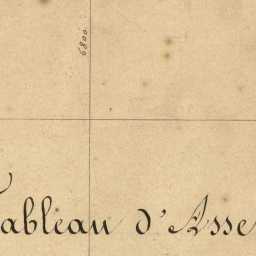 6800.
Tableau d'Asse